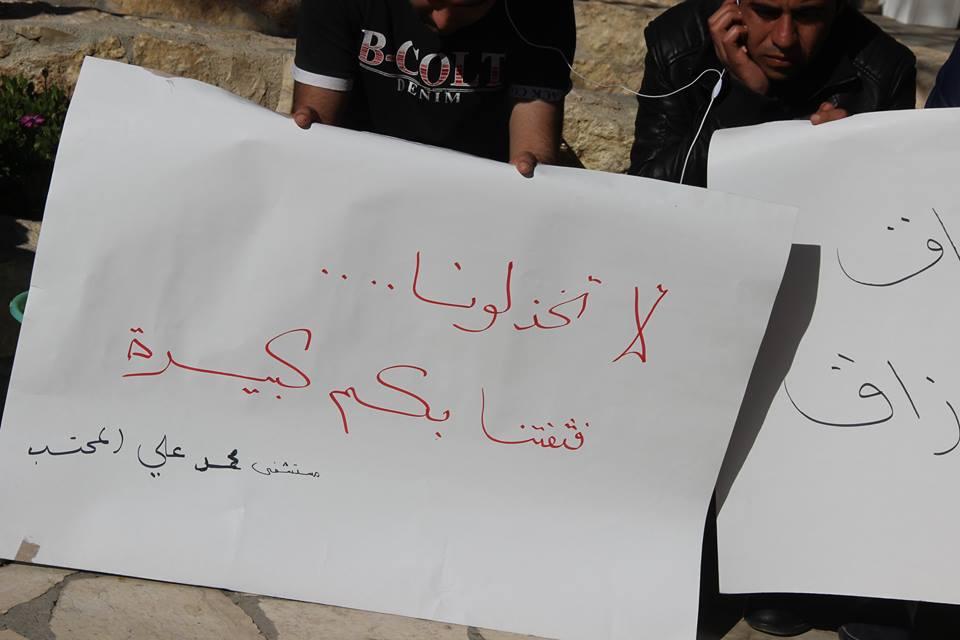 B-COLT
DENIM
لا تخذلونا....
فثقتنا بكم كبيرة
مستشفى محمد علي المحتسب